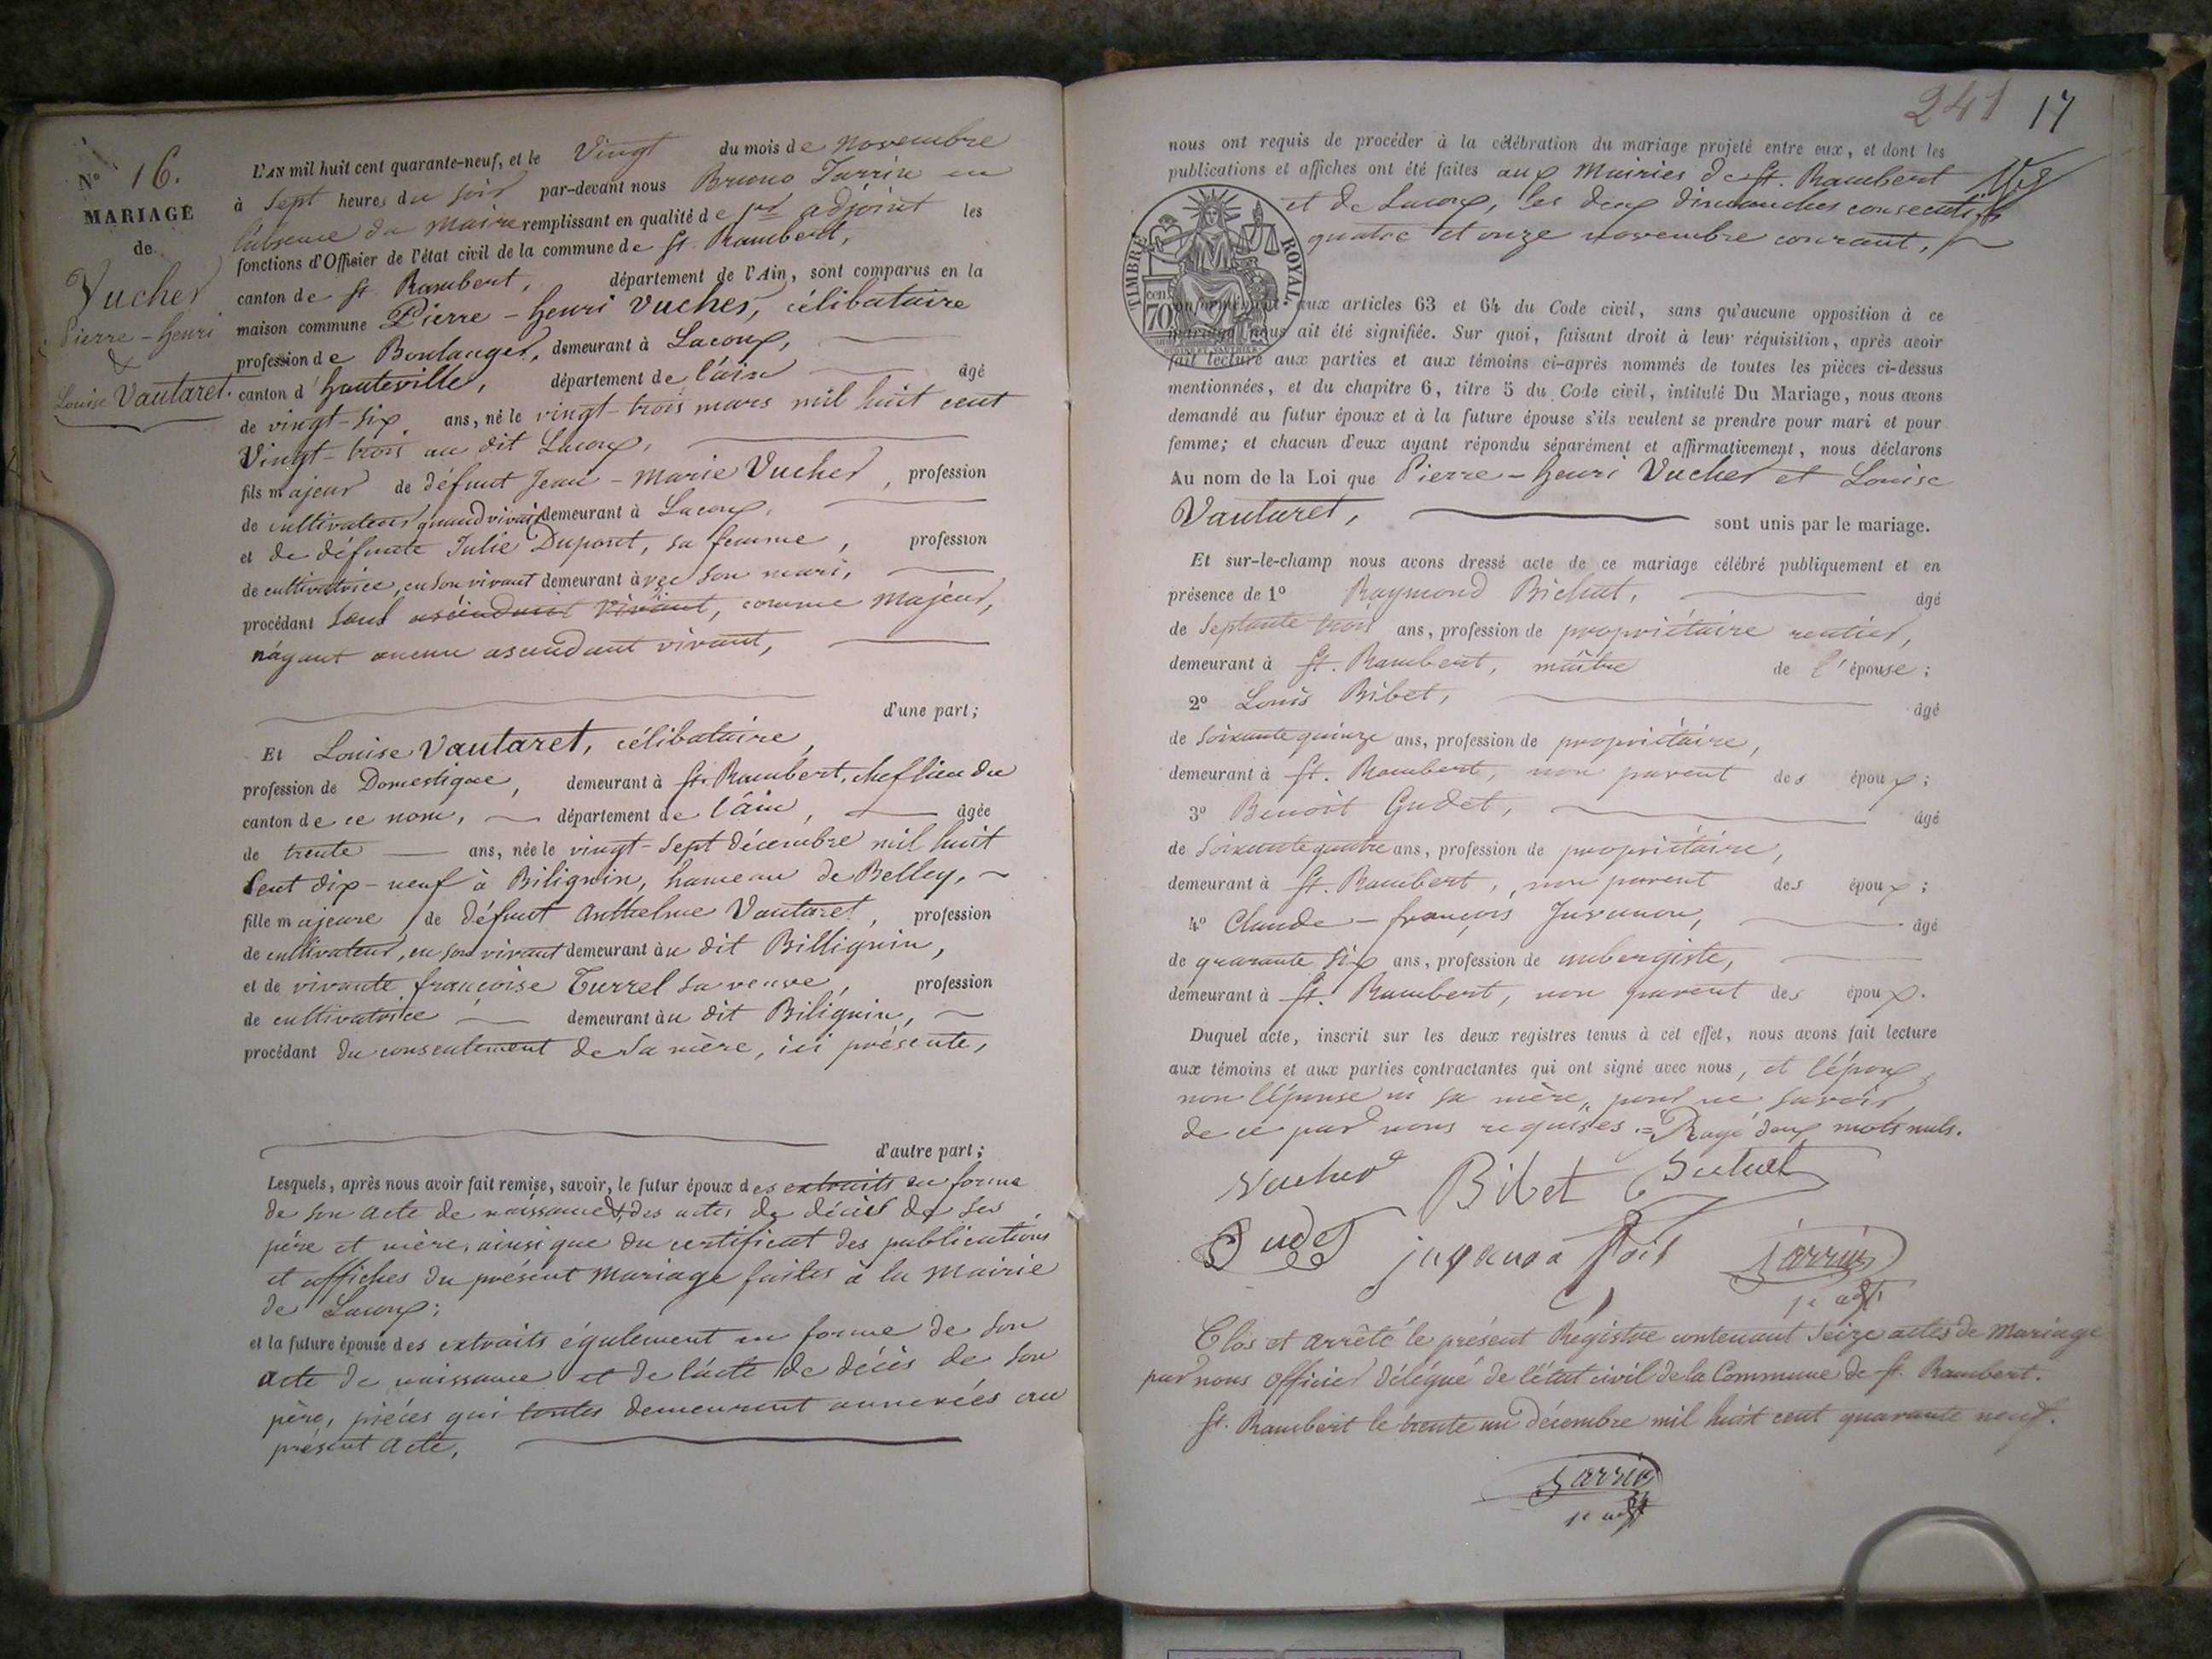 N° 16.
MARIAGE
de
Vucher
Pierre-henri
&
Louise Vautaret.
L'AN mil huit cent quarante-neuf, et le Vingt du mois de novembre
à Sept heures du soir par-devant nous Bruno Jarrin en
l'absence du Maire remplissant en qualité de 1er adjoint les
fonctions d'Officier de l'état civil de la commune de St. Rambert,
canton de St Rambert, département de l'Ain, sont comparus en la
maison commune Pierre-henri Vucher, célibataire
profession de Boulanger, demeurant à Lacoux,
canton d'hauteville, département de l'ain âgé
de vingt-six ans, né le vingt-trois mars mil huit cent
Vingt-trois au dit Lacoux,
fils majeur de défunt Jean-Marie Vucher, profession
de cultivateur quand vivait demeurant à Lacoux,
et de défunte Julie Dupont, sa femme, profession
de cultivatrice, en son vivant demeurant àvec son mari,
procédant sans ascendant vivant, comme majeur,
n'ayant aucun ascendant vivant,
d'une part;
Et Louise Vautaret, célibataire,
profession de Domestique, demeurant à St. Rambert, chef lieu du
canton de ce nom, département de l'ain, âgée
de trente ans, née le vingt-sept décembre mil huit
Cent dix-neuf à Bilignin, hameau de Belley,
fille majeure de défunt Anthelme Vautaret, profession
de cultivateur, en son vivant demeurant àu dit Billignin,
et de vivante françoise Turrel sa veuve, profession
de cultivatrice demeurant àu dit Bilignin,
procédant du consentement de sa mère, ici présente,
d'autre part;
Lesquels, après nous avoir fait remise, savoir, le futur époux des extraits en forme
de son acte de naissance & des actes de décès de ses
père et mère, ainsi que du certificat des publications
et affiches du présent mariage faites à la Mairie
de Lacoux;
et la future épouse des extraits également en forme de son
acte de naissance et de l'acte de décès de son
père, pièces qui toutes demeurent annexées au
présent acte,
241 17
nous ont requis de procéder à la célébration du mariage projeté entre eux, et dont les
publications et affiches ont été faites aux Mairies de St. Rambert
et de Lacoux, les deux dimanches consécutifs
quatre et onze novembre courant,
TIMBRE ROYAL
cen 70
conformément aux articles 63 et 64 du Code civil, sans qu'aucune opposition à ce
mariage nous ait été signifiée. Sur quoi, faisant droit à leur réquisition, après avoir
fait lecture aux parties et aux témoins ci-après nommés de toutes les pièces ci-dessus
mentionnées, et du chapitre 6, titre 5 du Code civil, intitulé Du Mariage, nous avons
demandé au futur époux et à la future épouse s'ils veulent se prendre pour mari et pour
femme; et chacun d'eux ayant répondu séparément et affirmativement, nous déclarons
Au nom de la Loi que Pierre-henri Vucher et Louise
Vautaret, sont unis par le mariage.
Et sur-le-champ nous avons dressé acte de ce mariage célébré publiquement et en
présence de 1° Raymond Bichat, âgé
de septante trois ans, profession de propriétaire rentier,
demeurant à St. Rambert, maître de l'épouse;
2° Louis Bibet, âgé
de soixante quinze ans, profession de propriétaire,
demeurant à St. Rambert, non parent des époux;
3° Benoit Gudet, âgé
de soixante quatre ans, profession de propriétaire,
demeurant à St. Rambert, non parent des époux;
4° Claude-françois Juvanon, âgé
de quarante six ans, profession de aubergiste,
demeurant à St. Rambert, non parent des époux.
Duquel acte, inscrit sur les deux registres tenus à cet effet, nous avons fait lecture
aux témoins et aux parties contractantes qui ont signé avec nous, et l'époux,
non l'épouse ni sa mère, pour ne savoir
de ce par nous requises. = Rayé deux mots nuls.
Vucher Bibet Bichat
Gudet juvanon Jarrin
1er adjt
Clos et arrêté le présent Régistre contenant Seize actes de Mariage
par nous Officier délégué de l'état civil de la Commune de St. Rambert.
St. Rambert le trente un décembre mil huit cent quarante neuf.
Jarrin
1er adjt